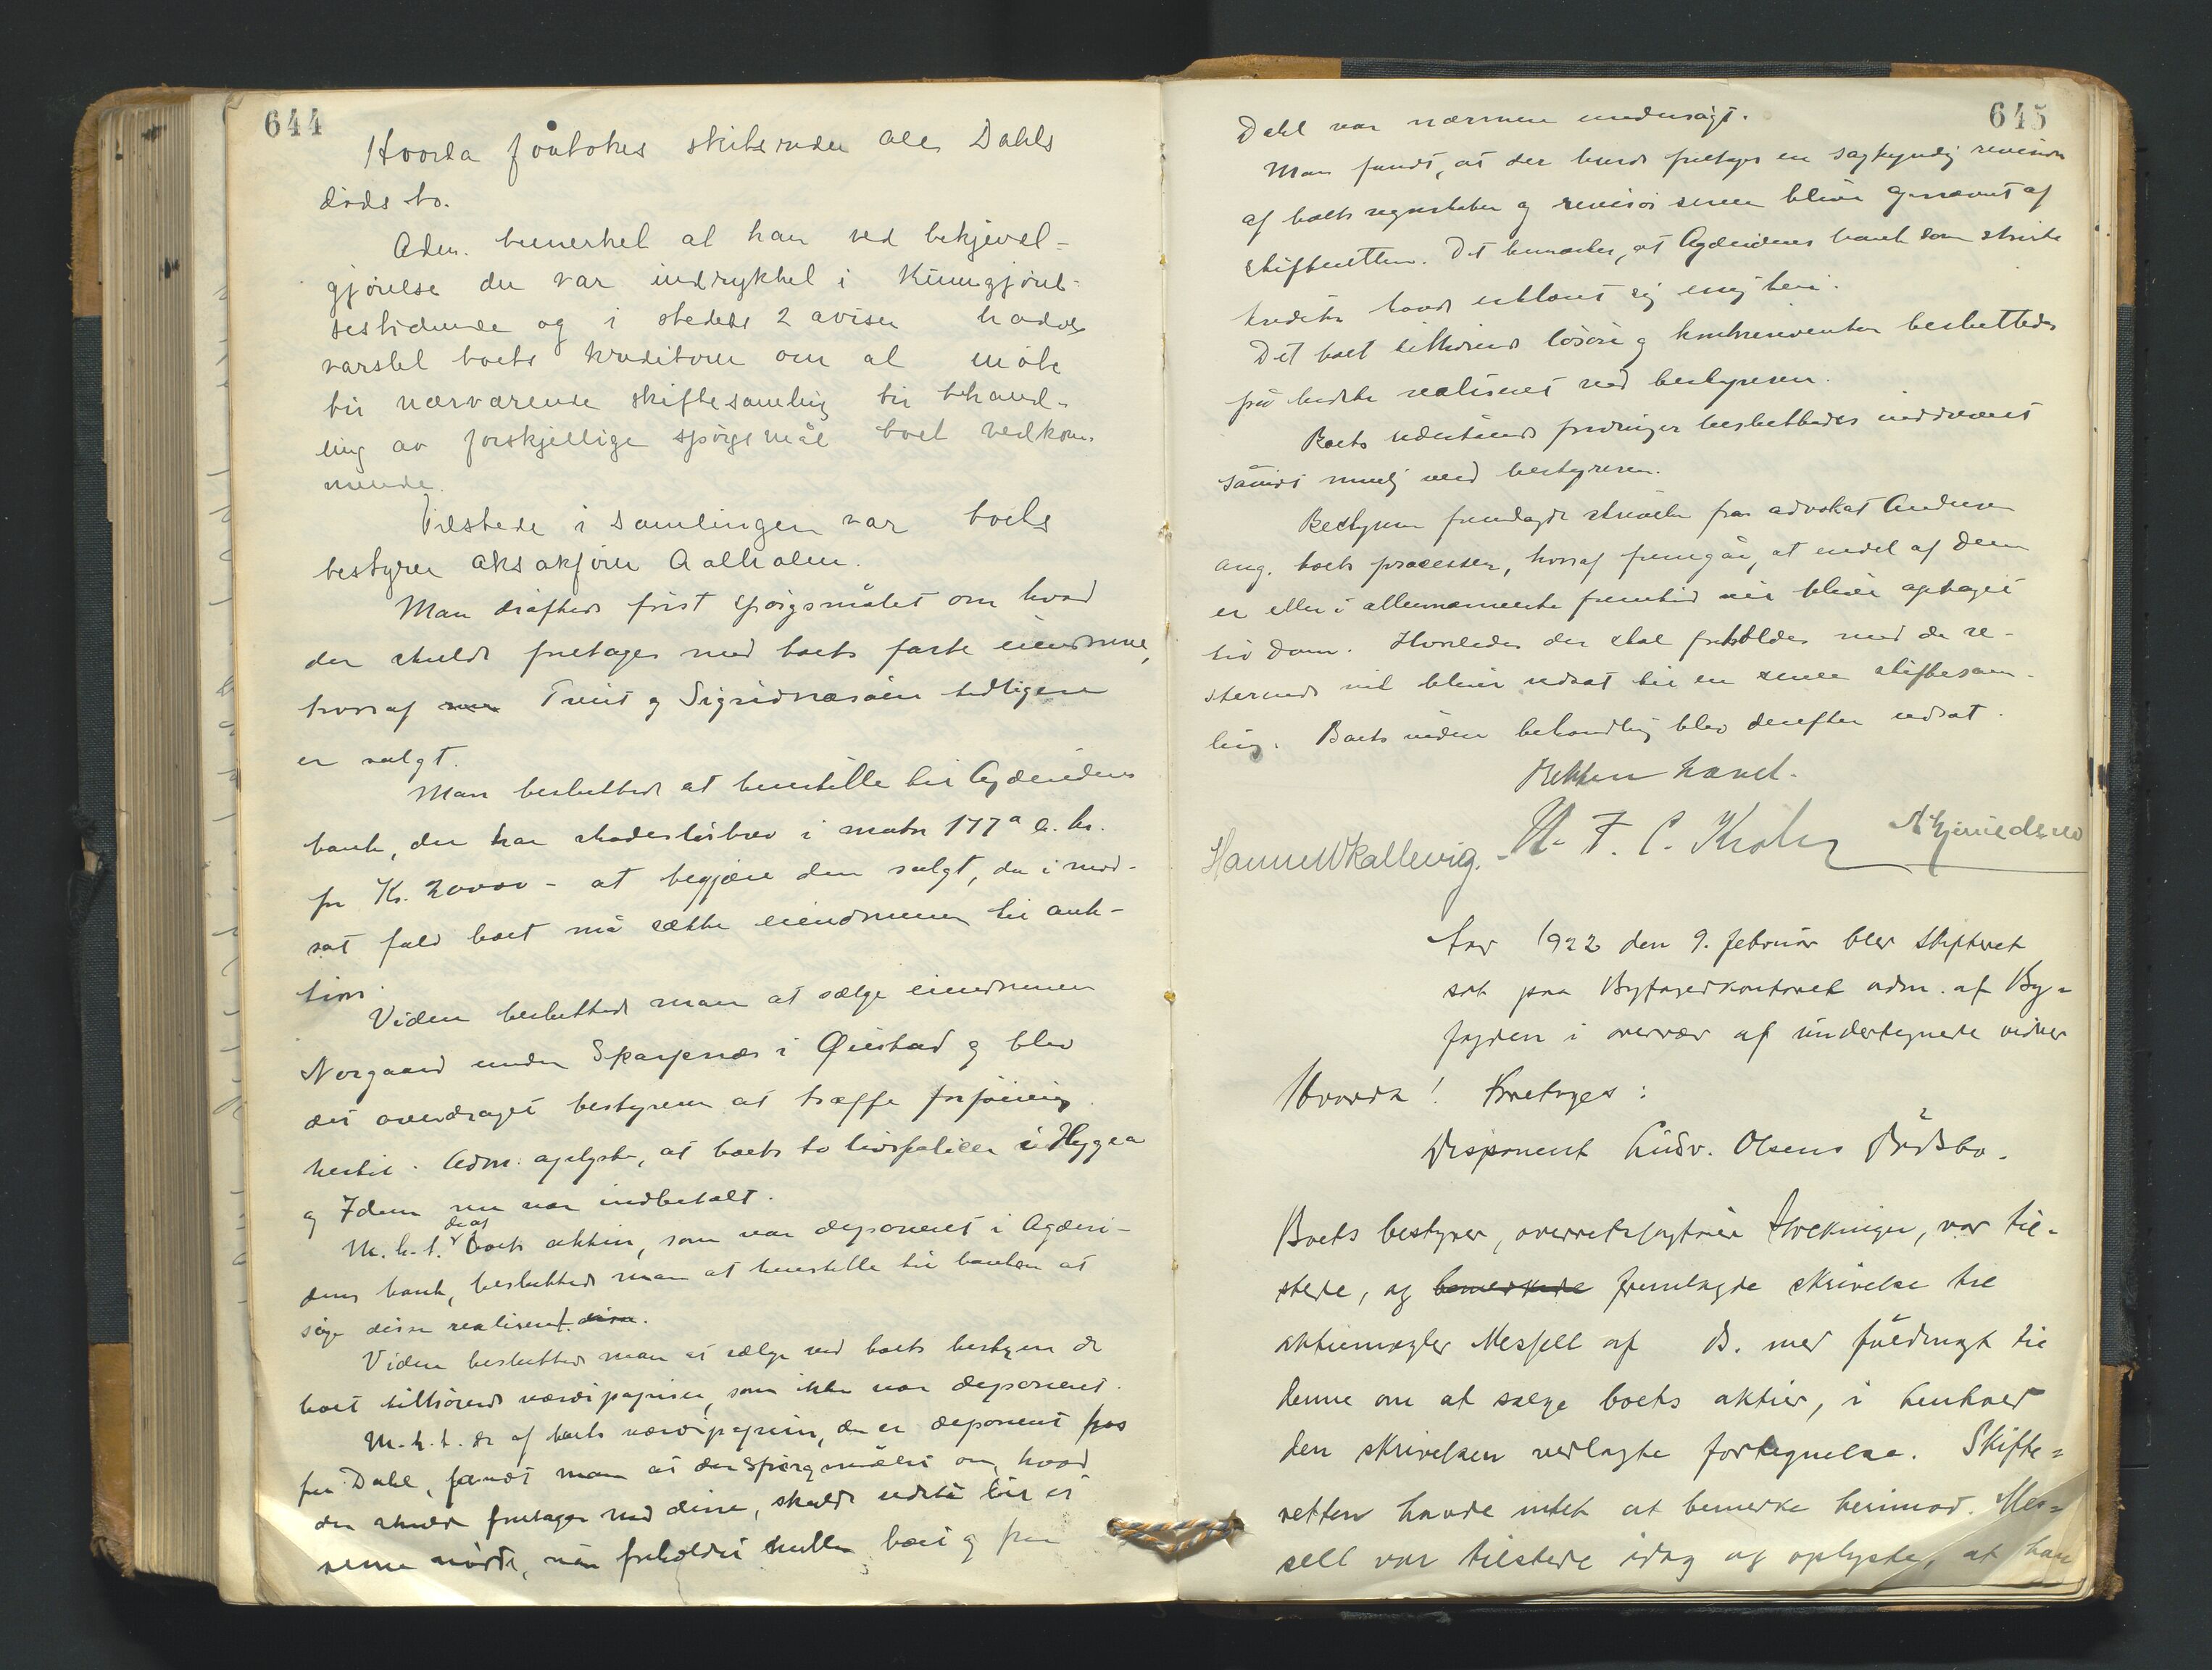 644
Hvorda foretokes skibsreder Alf Dahls
døds bo.
Adm. bemerket at han ved bekjendt-
gjørelse der var indrykket i Kundgjørel-
sestidende og i stedets 2 aviser hadde
varslet boets kreditorer om at møte
til nærværende skiftesamling til behand-
ling av forskjellige spørgsmål boet vedkom-
mende.
Tilstede i samlingen var boets
bestyrer Aalholm.
Man drøftede først spørgsmålet om hvad
der skulde foretages med boets faste eiendomme,
hvoraf Tveit og Sigridnæsøien tidligere
er solgt.
Man besluttede at henstille til Agdesidens
bank, der har skadesløsbrev i matr 177a
for Kr. 20000 - at begjære den solgt, da i mod-
sat fald boet må sætte eiendommen til auk-
tion.
Viden besluttede man at sælge eiendommen
Norgaard under Sparsnæs i Øiestad og blev
det overdraget bestyreren at træffe forføining
hertil. Adm. oplyste, at boets to livspolicer i Hygea
og Idun nu var indbetalt.
M.h.t. de af boets aktier, som var deponeret i Agdesi-
dens bank, besluttede man at henstille til banken at
søge disse realiseret.
Viden besluttede man at sælge ved boets bestyrer de
boet tilhørende værdipapirer, som ikke var deponeret.
M.h.t. de af boets værdipapirer, der er deponeret hos
fru Dahl, fandt man at spørgsmålet om, hvad
der skulde foretages med disse, skulde udstå til et
senere møde, når forholdet mellem boet og fru
645
Dahl var nærmere undersøgt.
Man fandt, at der burde foretages en sagkyndig revision
af boets regnskaber og revisor senere blive opnævnt af
skifteretten. Det bemerkes, at Agdesidens bank som største
kreditor havde erklæret sig enig heri.
Det boet tilhørende løsøre og kontorinventar besluttedes
på bedste realiseret ved bestyreren.
Boets udestående fordringer besluttedes inddrevet
såvidt mulig ved bestyreren.
Bestyreren fremlagde skrivelse fra advokat Andersen
ang. boets processer, hvoraf fremgår, at endel af dem
er eller i allernærmeste fremtid vil blive optaget
til dom. Hvorledes der skal forholdes med de re-
sterende vil blive udsat til en senere skiftesam-
ling. Boets viden behandling blev derefter udsat.
Retten hævet.
Hanna W Kallevig. N. F. C. Krohg
Aar 1922 den 9. februar blev skifteret
sat paa Byfogedkontoret adm. af By-
fogden i overvær af undertegnede vidner
Hvorda! Foretoges:
Disponent Ludv. Olsens Dødsbo.
Boets bestyrer, overretssagfører, var til-
stede, og bemerkede fremlagde skrivelse til
aktiemægler Messell af D. med fuldmagt til
denne om at sælge boets aktier, i henhold
den skrivelsen vedlagte fortegnelse. Skifte-
retten havde intet at bemerke herimod. Mes-
sell var tilstede idag og oplyste, at han